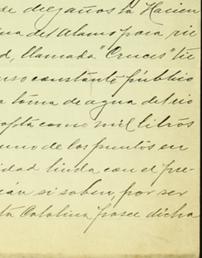 de diez años la Hacien
na del Alamo para rie
d, llamada "Cruces" tie
uso constante público
la toma de agua del rio
como mil litros
uno de los puntos en
idad linda con el pre
si saben, por ser
ta Catalina posee dicha